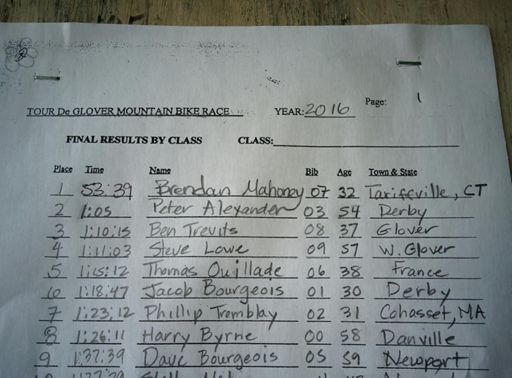 TOUR De GLOVER MOUNTAIN BIKE RACE YEAR: 2016 Page: 1
FINAL RESULTS BY CLASS CLASS:
Place Time Name Bib Age Town & State
1 53:39 Brendan Mahoney 07 32 Tariffville, CT
2 1:05 Peter Alexander 03 54 Derby
3 1:10:15 Ben Trevits 08 37 Glover
4 1:11:03 Steve Lowe 09 57 W. Glover
5 1:15:12 Thomas Ouillade 06 38 France
6 1:18:47 Jacob Bourgeois 01 30 Derby
7 1:23:12 Phillip Tremblay 02 31 Cohasset, MA
8 1:26:11 Harry Byrne 00 58 Danville
9 1:37:39 Dave Bourgeois 05 59 Newport